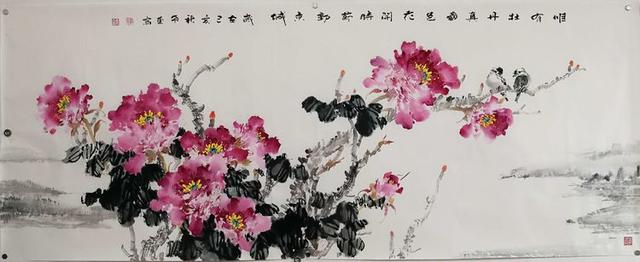 唯有牡丹真國色花開時節動京城歲在己亥秋